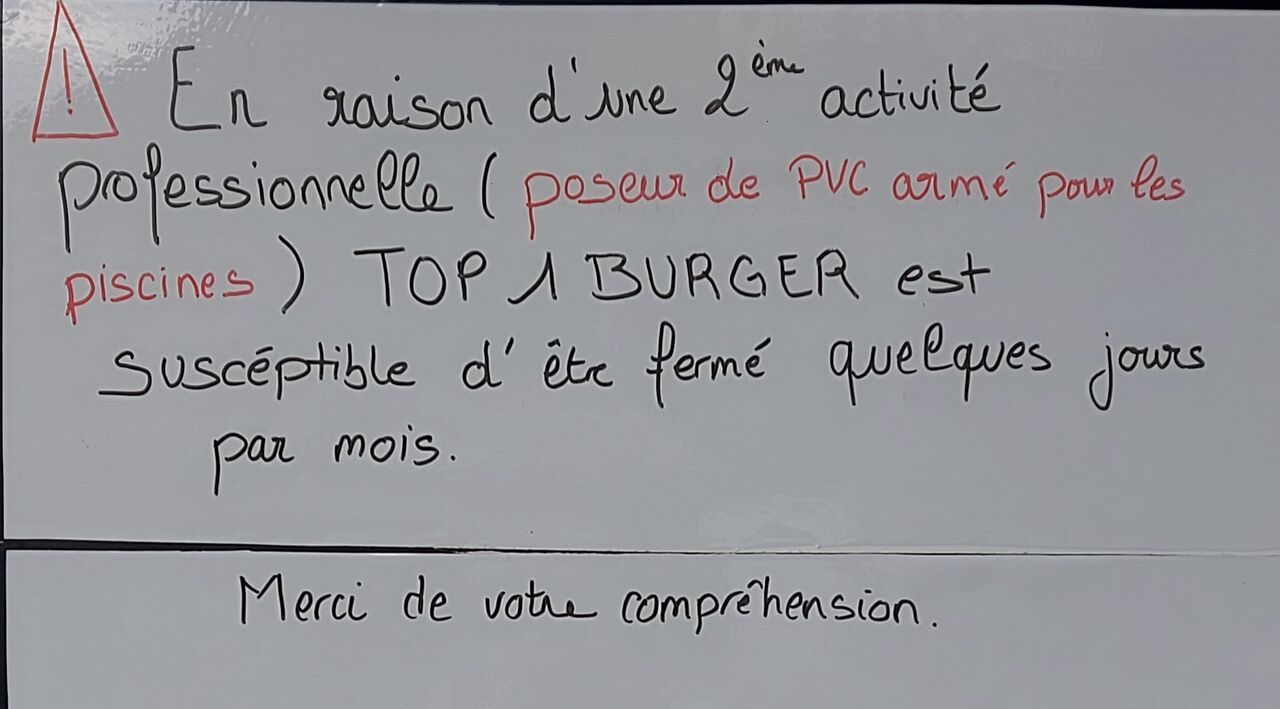 ! En raison d'une 2ème activité
professionnelle ( poseur de PVC armé pour les
piscines ) TOP 1 BURGER est
suscéptible d'être fermé quelques jours
par mois.
Merci de votre compréhension.